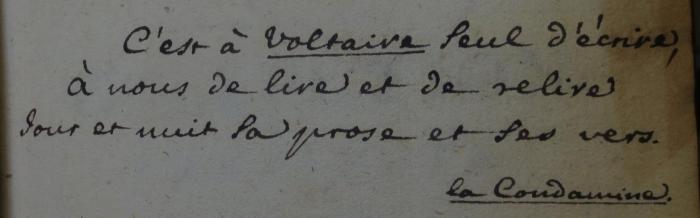 C'est à Voltaire seul d'écrire,
à nous de lire et de relire
Jour et nuit sa prose et ses vers.
la Condamine.